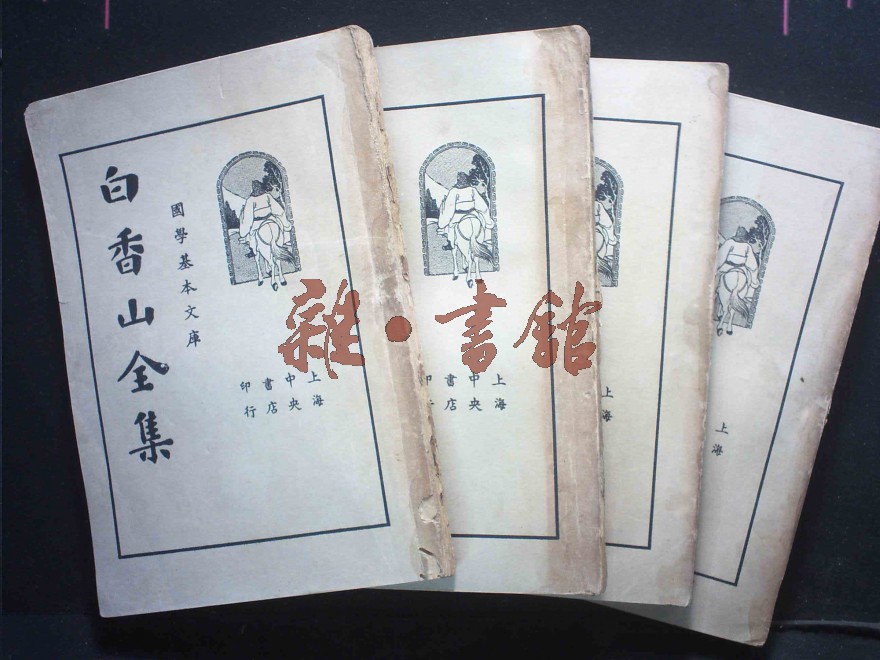 白香山全集
國學基本文庫
上海
中央
書店
印行
上海
中央
書店
印
上海
上海
雜·書館